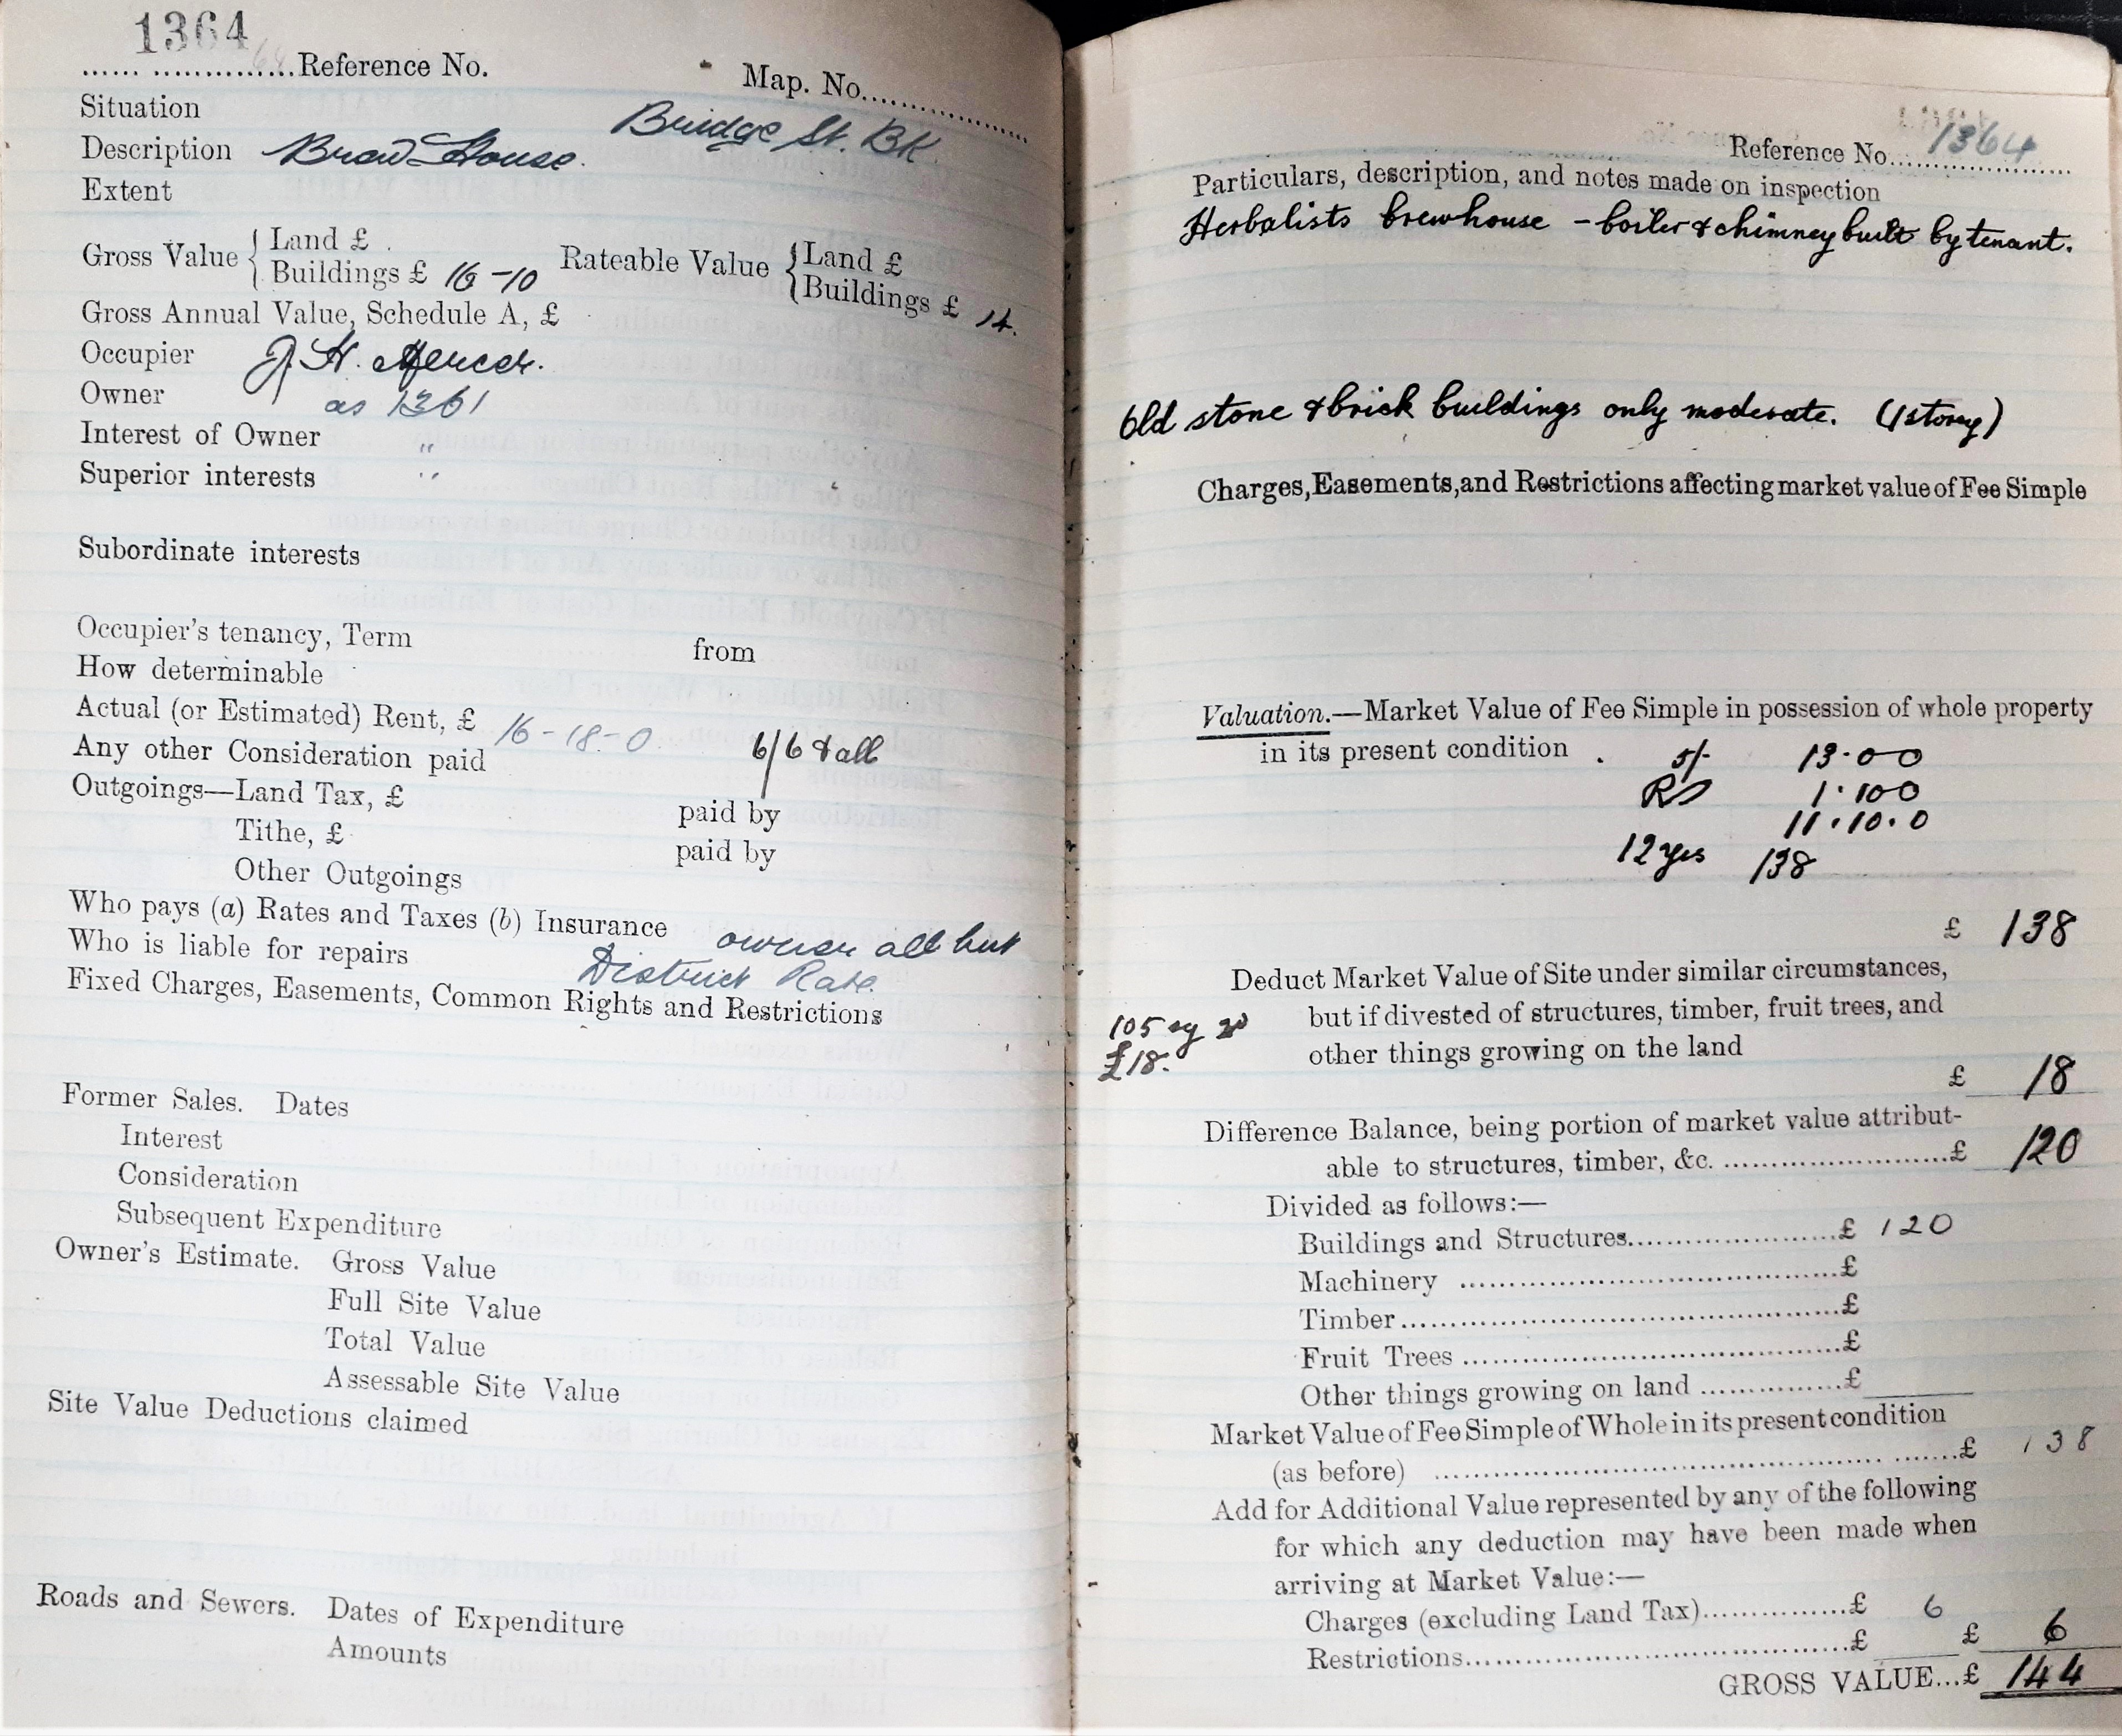 1364
...... ...............Reference No. Map. No..................
Situation Bridge St. BK
Description Brew House.
Extent
Gross Value { Land £ . Rateable Value { Land £
Buildings £ 16-10 Buildings £ 14.
Gross Annual Value, Schedule A, £
Occupier J. H. Mercer.
Owner as 1361
Interest of Owner "
Superior interests "
Subordinate interests
Occupier's tenancy, Term from
How determinable
Actual (or Estimated) Rent, £ 16-18-0
Any other Consideration paid 6/6 & all
Outgoings—Land Tax, £ paid by
Tithe, £ paid by
Other Outgoings
Who pays (a) Rates and Taxes (b) Insurance owner all but
Who is liable for repairs District Rate.
Fixed Charges, Easements, Common Rights and Restrictions
Former Sales. Dates
Interest
Consideration
Subsequent Expenditure
Owner's Estimate. Gross Value
Full Site Value
Total Value
Assessable Site Value
Site Value Deductions claimed
Roads and Sewers. Dates of Expenditure
Amounts
Reference No. 1364
Particulars, description, and notes made on inspection
Herbalists brewhouse - boiler & chimney built by tenant.
Old stone & brick buildings only moderate. (1 storey)
Charges, Easements, and Restrictions affecting market value of Fee Simple
Valuation.—Market Value of Fee Simple in possession of whole property
in its present condition . 5/- 13.0 0
1.10 0
11.10.0
12 yrs 138
£ 138
Deduct Market Value of Site under similar circumstances,
but if divested of structures, timber, fruit trees, and
105 sq
£18.
other things growing on the land
£ 18
Difference Balance, being portion of market value attribut-
able to structures, timber, &c. ........................£ 120
Divided as follows:—
Buildings and Structures......................£ 120
Machinery ......................................£
Timber............................................£
Fruit Trees .....................................£
Other things growing on land ...............£
Market Value of Fee Simple of Whole in its present condition
(as before) ......................................................£ 138
Add for Additional Value represented by any of the following
for which any deduction may have been made when
arriving at Market Value:—
Charges (excluding Land Tax)...............£ 6
Restrictions.......................................£ £ 6
GROSS VALUE...£ 144